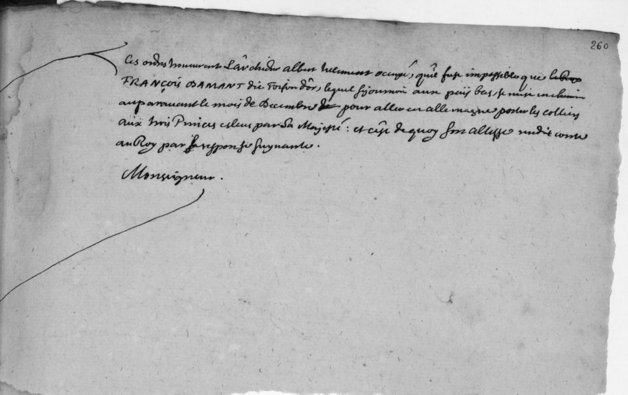 260
Ces ordres trouverent L'archiduc albert tellement occupé, qu'il fust impossible que le
FRANÇOIS DAMANT dit Toison d'or, lequel sejournoit aux païs bas, se mist en chemin
auparavant le mois de Decembre pour aller en allemagne porter les colliers
aux trois Princes esleus par Sa Majesté : et c'est de quoy son altesse rendit conte
au Roy par la response suyvante.
Monseigneur.